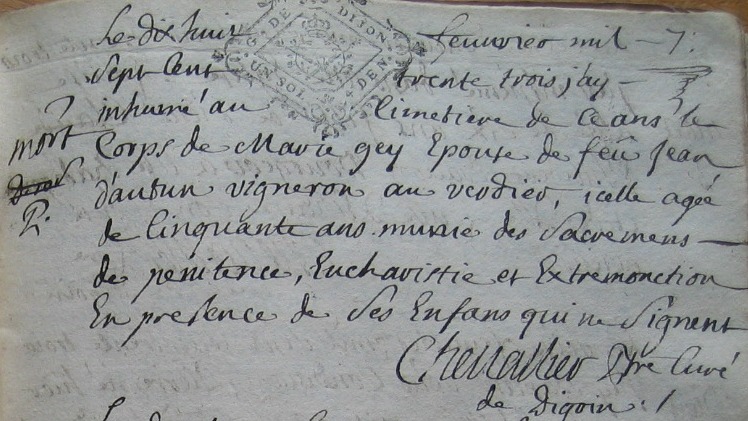 Le dix huit fevurier mil 7.
sept Cent trente trois j'ay
inhumé au Cimetiere de Ceans le
Corps de Marie gey Epouse de feü Jean
d'autun vigneron au verdier, icelle agée
de Cinquante ans munie des Sacremens
de penitence, Eucharistie et Extremonction
En presence de Ses Enfans qui ne Signent
Chevallier Ptre Curé
de Digoin.
mort
G. DE DIJON
UN SOL
DEN